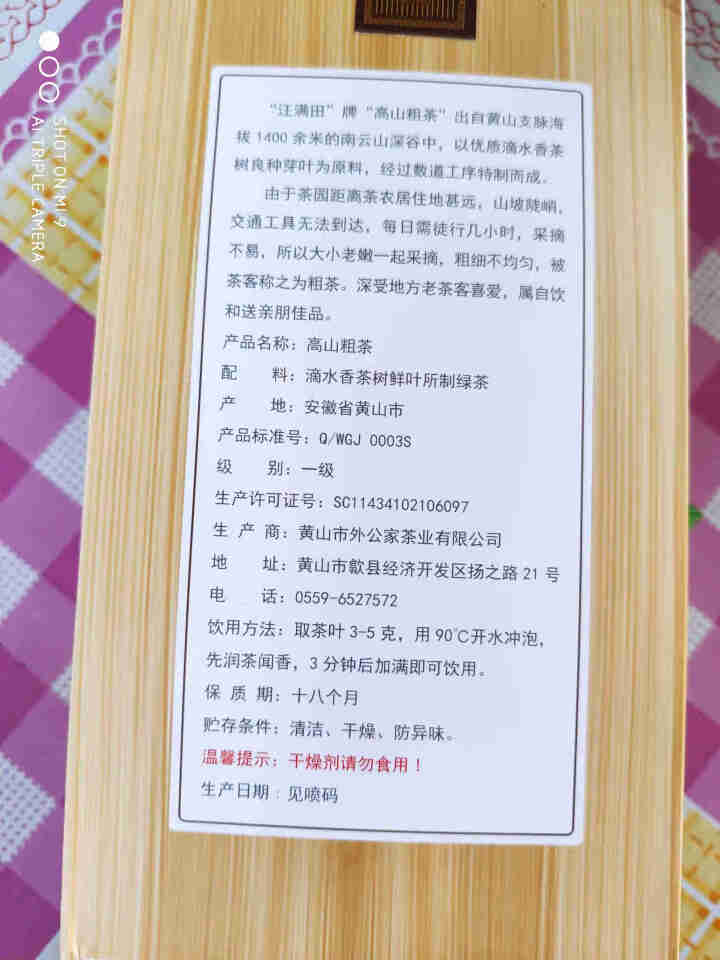 “汪满田”牌“高山粗茶”出自黄山支脉海
拔1400余米的南云山深谷中，以优质滴水香茶
树良种芽叶为原料，经过数道工序特制而成。
由于茶园距离茶农居住地甚远，山坡陡峭，
交通工具无法到达，每日需徒行几小时，采摘
不易，所以大小老嫩一起采摘，粗细不均匀，被
茶客称之为粗茶。深受地方老茶客喜爱，属自饮
和送亲朋佳品。
产品名称：高山粗茶
配 料：滴水香茶树鲜叶所制绿茶
产 地：安徽省黄山市
产品标准号：Q/WGJ 0003S
级 别：一级
生产许可证号：SC11434102106097
生 产 商：黄山市外公家茶业有限公司
地 址：黄山市歙县经济开发区扬之路21号
电 话：0559-6527572
饮用方法：取茶叶3-5克，用90℃开水冲泡，
先润茶闻香，3分钟后加满即可饮用。
保 质 期：十八个月
贮存条件：清洁、干燥、防异味。
温馨提示：干燥剂请勿食用！
生产日期：见喷码
SHOT ON MI 9
AI TRIPLE CAMERA